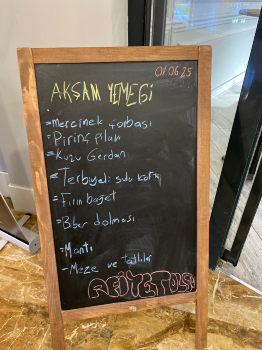 01.06.25
AKŞAM YEMEĞİ
-Mercimek çorbası
-Pirinç pilavı
-Kuzu Gerdan
-Terbiyeli sulu köfte
-Fırın baget
-Biber dolması
-Mantı
-Meze ve tatlılar
AFİYET OLSUN